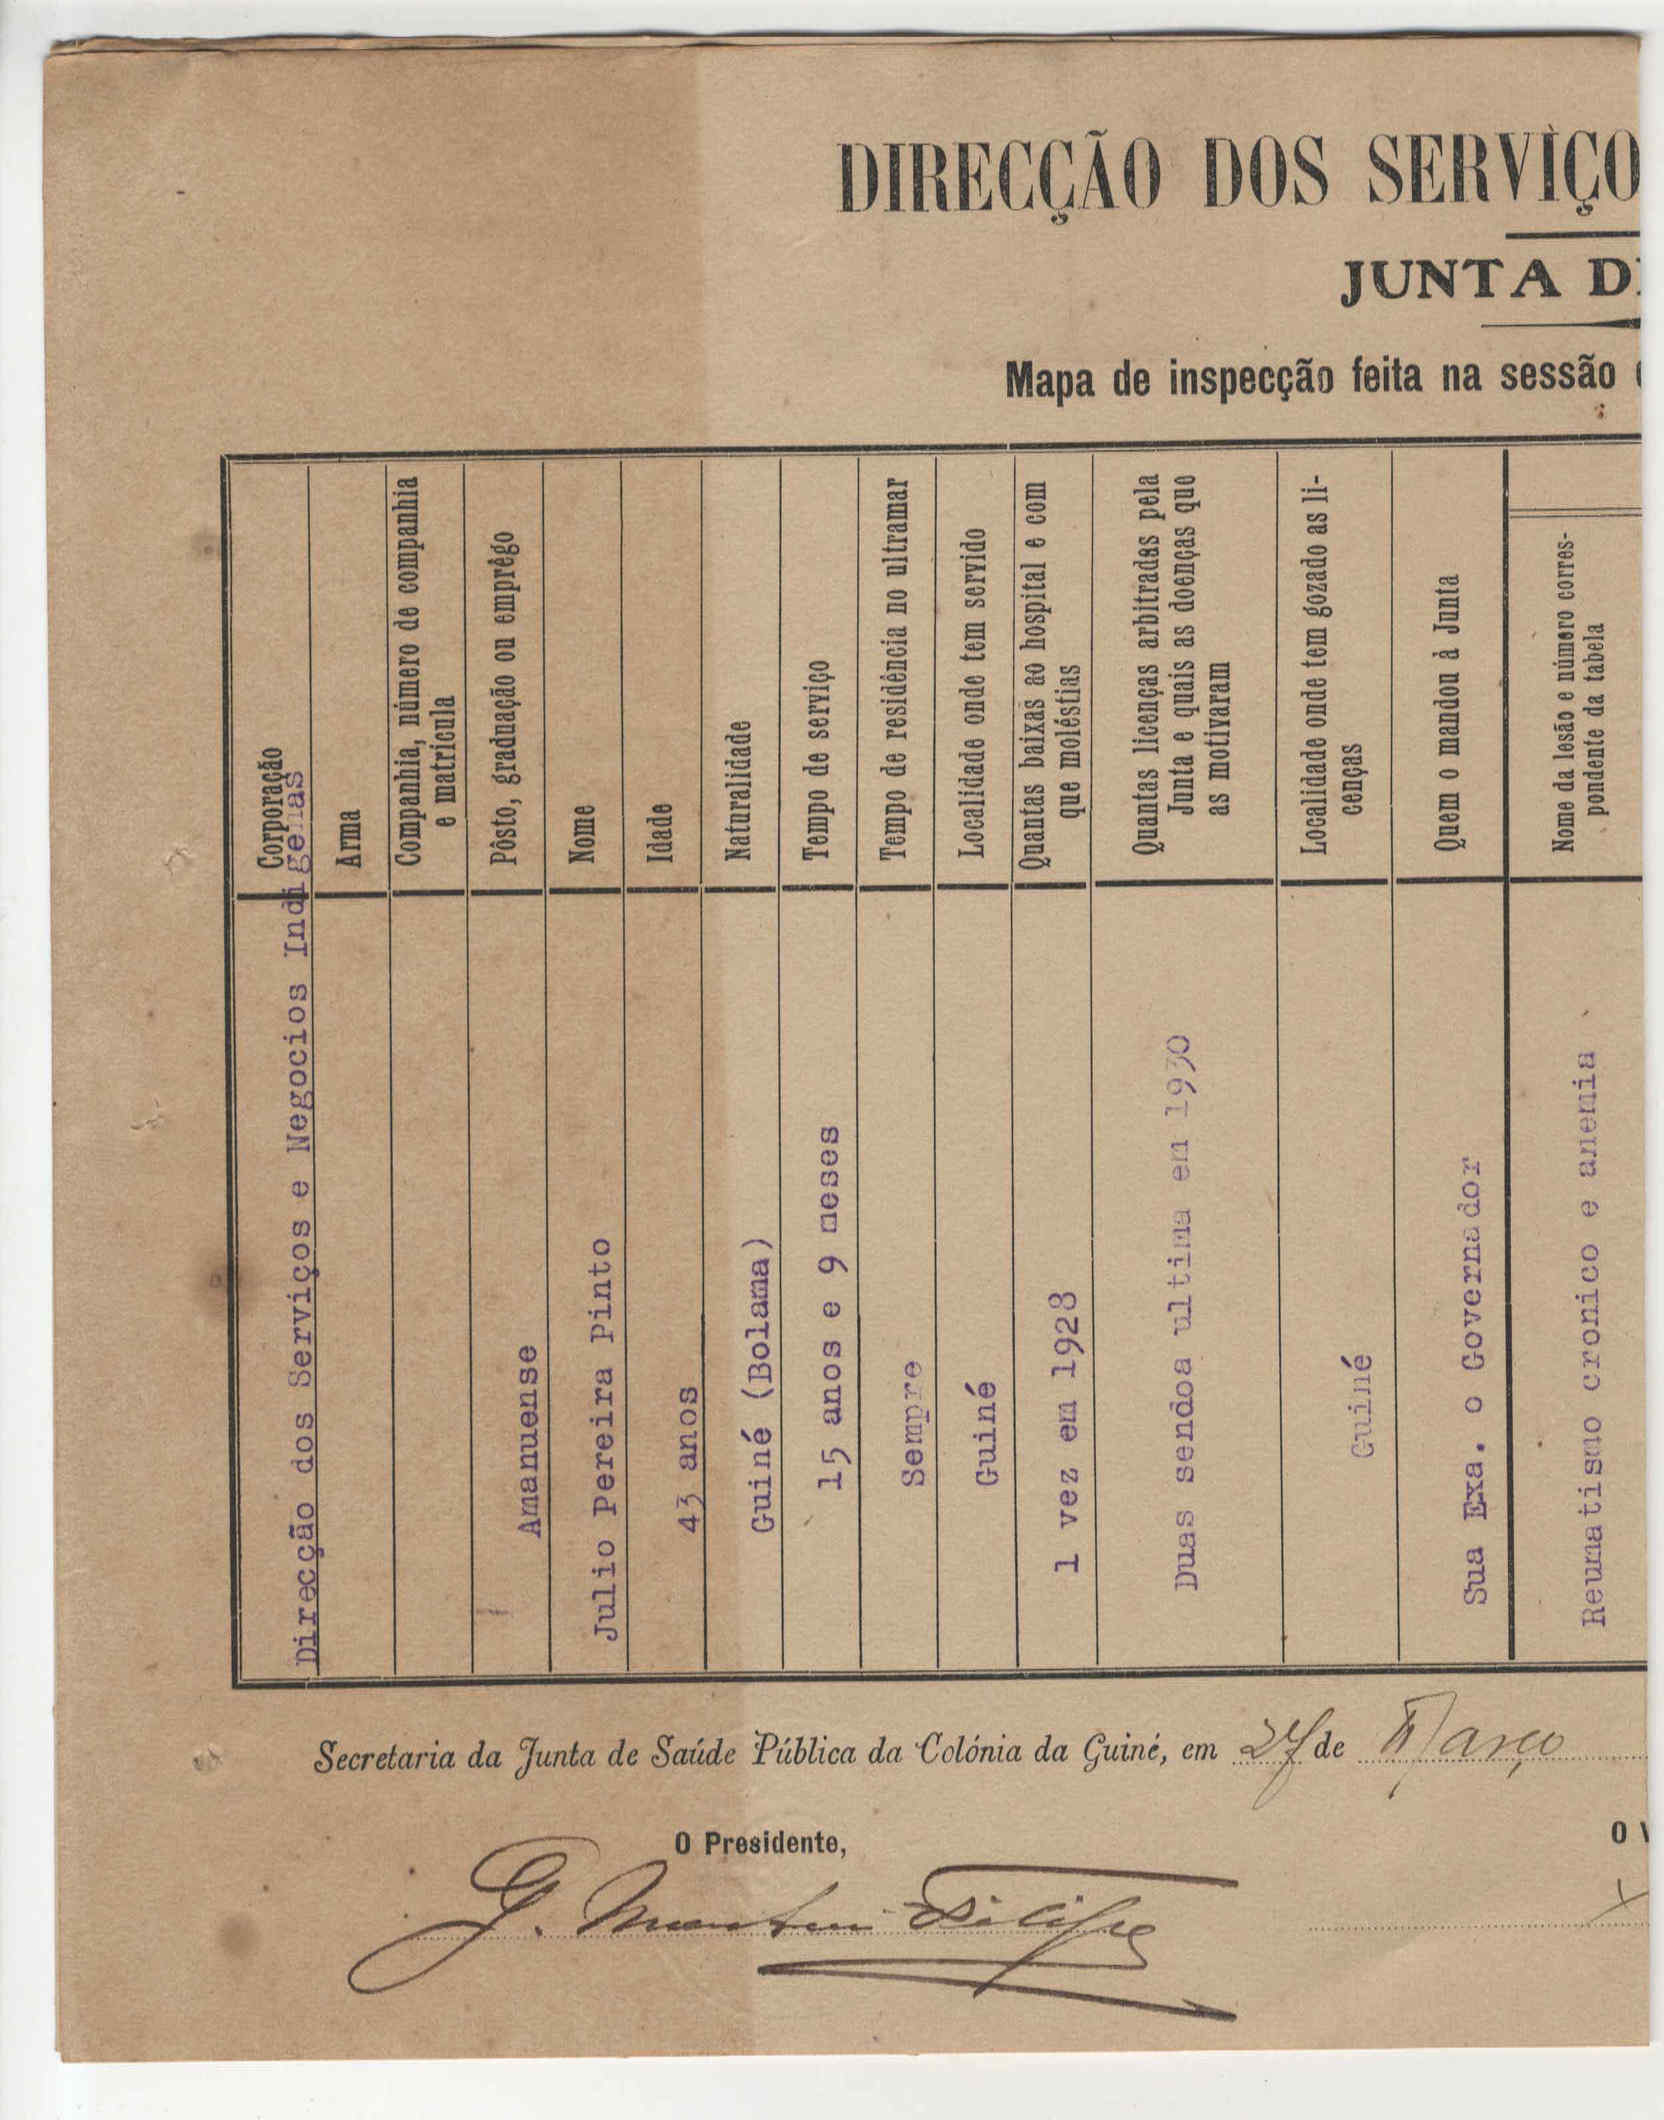 DIRECÇÃO DOS SERVIÇO
JUNTA D
Mapa de inspecção feita na sessão
Corporação
Direcção dos Serviços e Negocios Indigenas
Arma
Companhia, número de companhia
e matricula
Pôsto, graduação ou emprêgo
Amanuense
Nome
Julio Pereira Pinto
Idade
43 anos
Naturalidade
Guiné (Bolama)
Tempo de serviço
15 anos e 9 meses
Tempo de residência no ultramar
Sempre
Localidade onde tem servido
Guiné
Quantas baixas ao hospital e com
que moléstias
1 vez em 1928
Quantas licenças arbitradas pela
Junta e quais as doenças que
as motivaram
Duas sendoa ultima em 1930
Localidade onde tem gozado as li-
cenças
Guiné
Quem o mandou à Junta
Sua Exa. o Governador
Nome da lesão e número corres-
pondente da tabela
Reumatismo cronico e anemia
Secretaria da Junta de Saúde Pública da Colónia da Guiné, em 27 de Março
O Presidente,
O V
G. Filipe